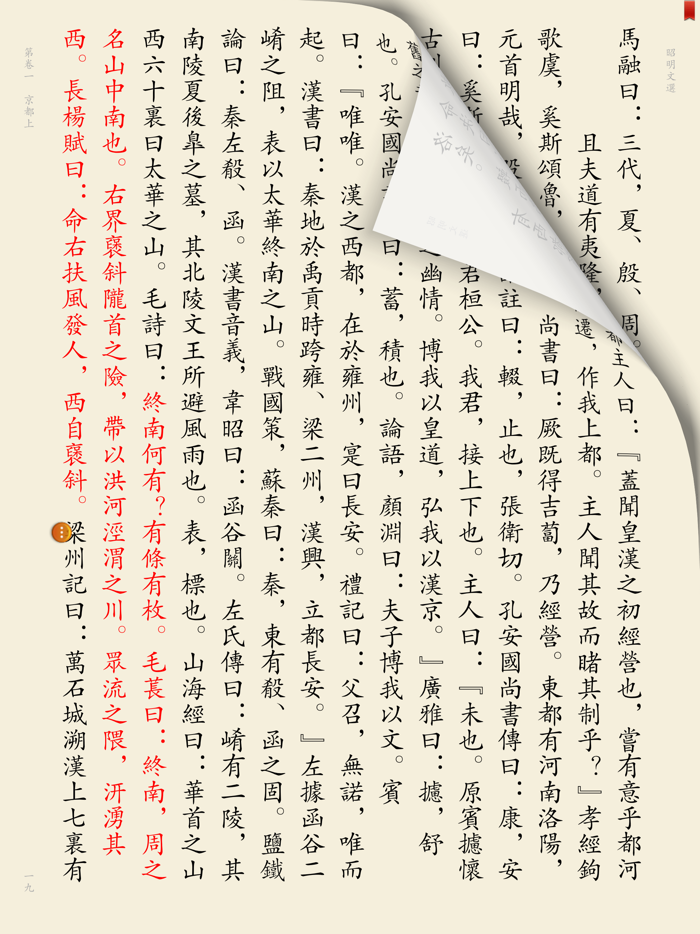 昭明文選
馬融曰：三代，夏、殷、周。
都主人曰：『蓋聞皇漢之初經營也，嘗有意乎都河
且夫道有夷隆，
遷，作我上都。主人聞其故而睹其制乎？』孝經鉤
歌虞，奚斯頌魯，
尚書曰：厥既得吉蔔，乃經營。東都有河南洛陽，
元首明哉，
註曰：輟，止也，張衛切。孔安國尚書傳曰：康，安
曰：奚斯
君桓公。我君，接上下也。主人曰：『未也。原賓攄懷
古
之幽情。博我以皇道，弘我以漢京。』廣雅曰：攄，舒
也。孔安國尚
曰：蓄，積也。論語，顏淵曰：夫子博我以文。賓
曰：『唯唯。漢之西都，在於雍州，寔曰長安。禮記曰：父召，無諾，唯而
起。漢書曰：秦地於禹貢時跨雍、梁二州，漢興，立都長安。』左據函谷二
崤之阻，表以太華終南之山。戰國策，蘇秦曰：秦，東有殽、函之固。鹽鐵
論曰：秦左殽、函。漢書音義，韋昭曰：函谷關。左氏傳曰：崤有二陵，其
南陵夏後皋之墓，其北陵文王所避風雨也。表，標也。山海經曰：華首之山
西六十裏曰太華之山。毛詩曰：終南何有？有條有枚。毛萇曰：終南，周之
名山中南也。右界褒斜隴首之險，帶以洪河涇渭之川。眾流之隈，汧湧其
西。長楊賦曰：命右扶風發人，西自褒斜。梁州記曰：萬石城溯漢上七裏有
第卷一 京都上
一九